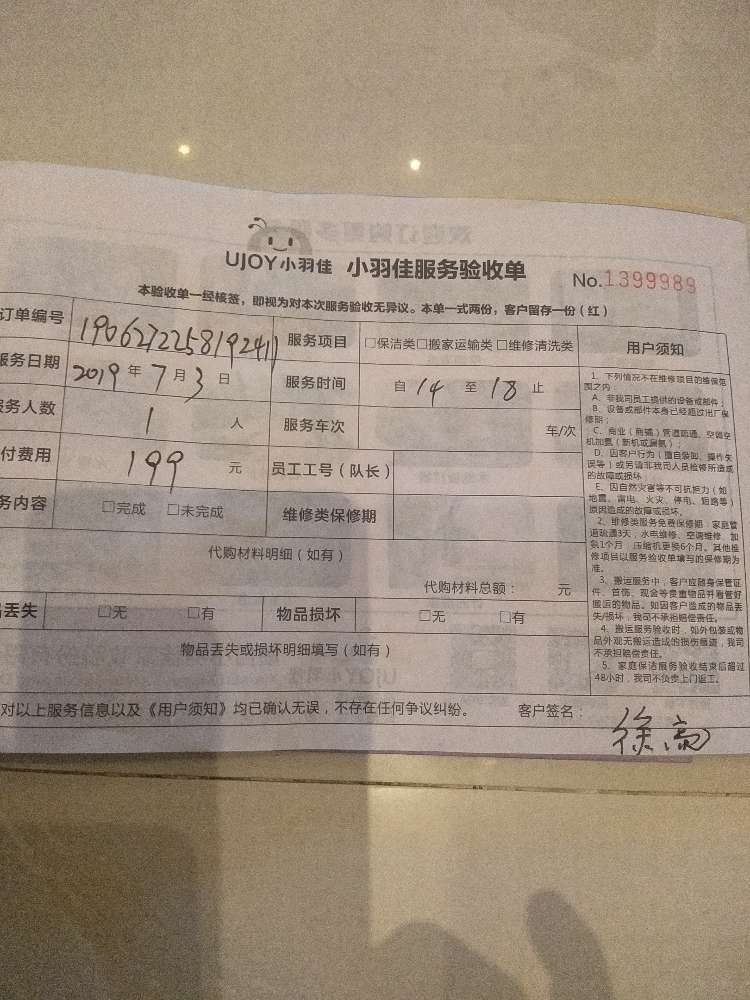 UJOY小羽佳 小羽佳服务验收单 No.1399989
本验收单一经核签，即视为对本次服务验收无异议。本单一式两份，客户留存一份（红）
订单编号 190627225819241 服务项目 □保洁类□搬家运输类□维修清洗类
服务日期 2019年7月3日 服务时间 自14至18止
服务人数 1人 服务车次 车/次
付费用 199元 员工工号（队长）
务内容 □完成 □未完成 维修类保修期
代购材料明细（如有）
代购材料总额： 元
丢失 □无 □有 物品损坏 □无 □有
物品丢失或损坏明细填写（如有）
对以上服务信息以及《用户须知》均已确认无误，不存在任何争议纠纷。 客户签名：
徐高
用户须知
1、下列情况不在维修项目的维保范
围之内：
A、非我司员工提供的设备或部件；
B、设备或部件本身已经超过出厂保
修期；
C、商业（商铺）管道疏通、空调空
机加氟（新机或漏氟）；
D、因客户行为（擅自装卸、操作失
误等）或另请非我司人员检修所造成
的故障或损坏
E、因自然灾害等不可抗拒力（如
地震、雷电、火灾、停电、短路等）
原因造成的故障或损坏。
2、维修类服务免费保修期：家庭管
道疏通3天，水电维修、空调维修、加
氟1个月，压缩机更换6个月。其他维
修项目以服务验收单填写的保修期为
准。
3、搬运服务中，客户应随身保管证
件、首饰、现金等贵重物品并看管好
搬运的物品。如因客户造成的物品丢
失/损坏，我司不承担赔偿责任。
4、搬运服务验收时，如外包装或物
品外观无搬运造成的损伤痕迹，我司
不承担赔偿责任。
5、家庭保洁服务验收结束后超过
48小时，我司不负责上门返工。